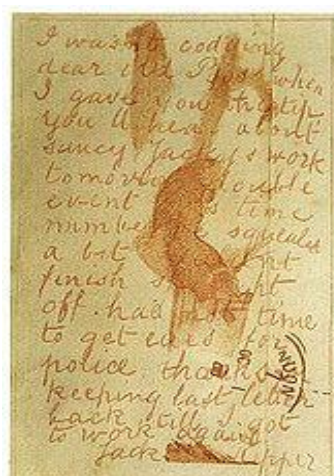 I was not codding
dear old Boss when
I gave you the tip
you'll hear about
saucy Jackys work
tomorrow double
event this time
number one squealed
a bit couldnt
finish straight
off. had not time
to get ears for
police thanks for
keeping last letter
back till I got
to work again
Jack the Ripper